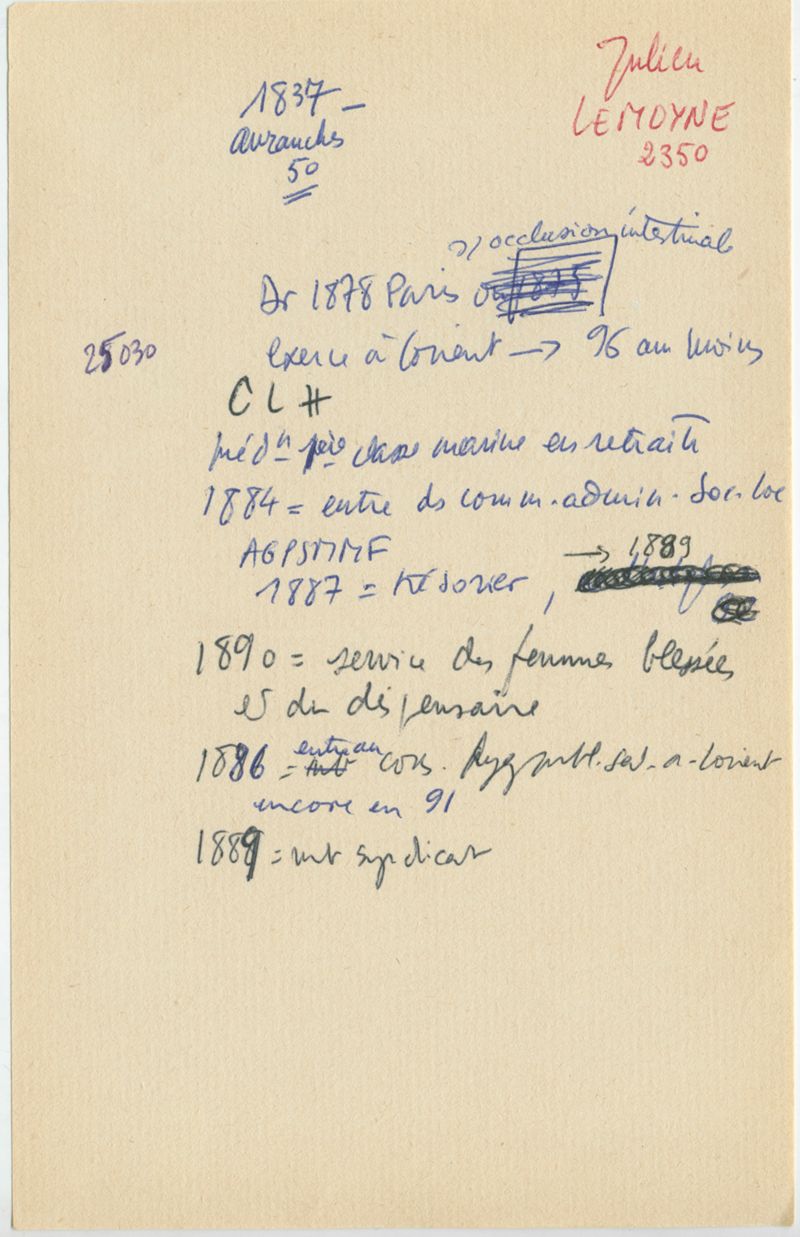 Julien
LEMOYNE
2350
1837 -
Avranches
50
s/ occlusion intestinale
Dr 1878 Paris ou 1875
25030
exerce à Lorient → 96 au moins
CLH
méd n 1ère classe marine en retraite
1884 = entre ds comm. admin. Soc. loc
AGPSMMF
→ 1889
1887 = trésorier,
1890 = service des femmes blessées
et du dispensaire
1886 = entre au cons. hyg publ. sal. à Lorient
encore en 91
1889 = mb syndicat